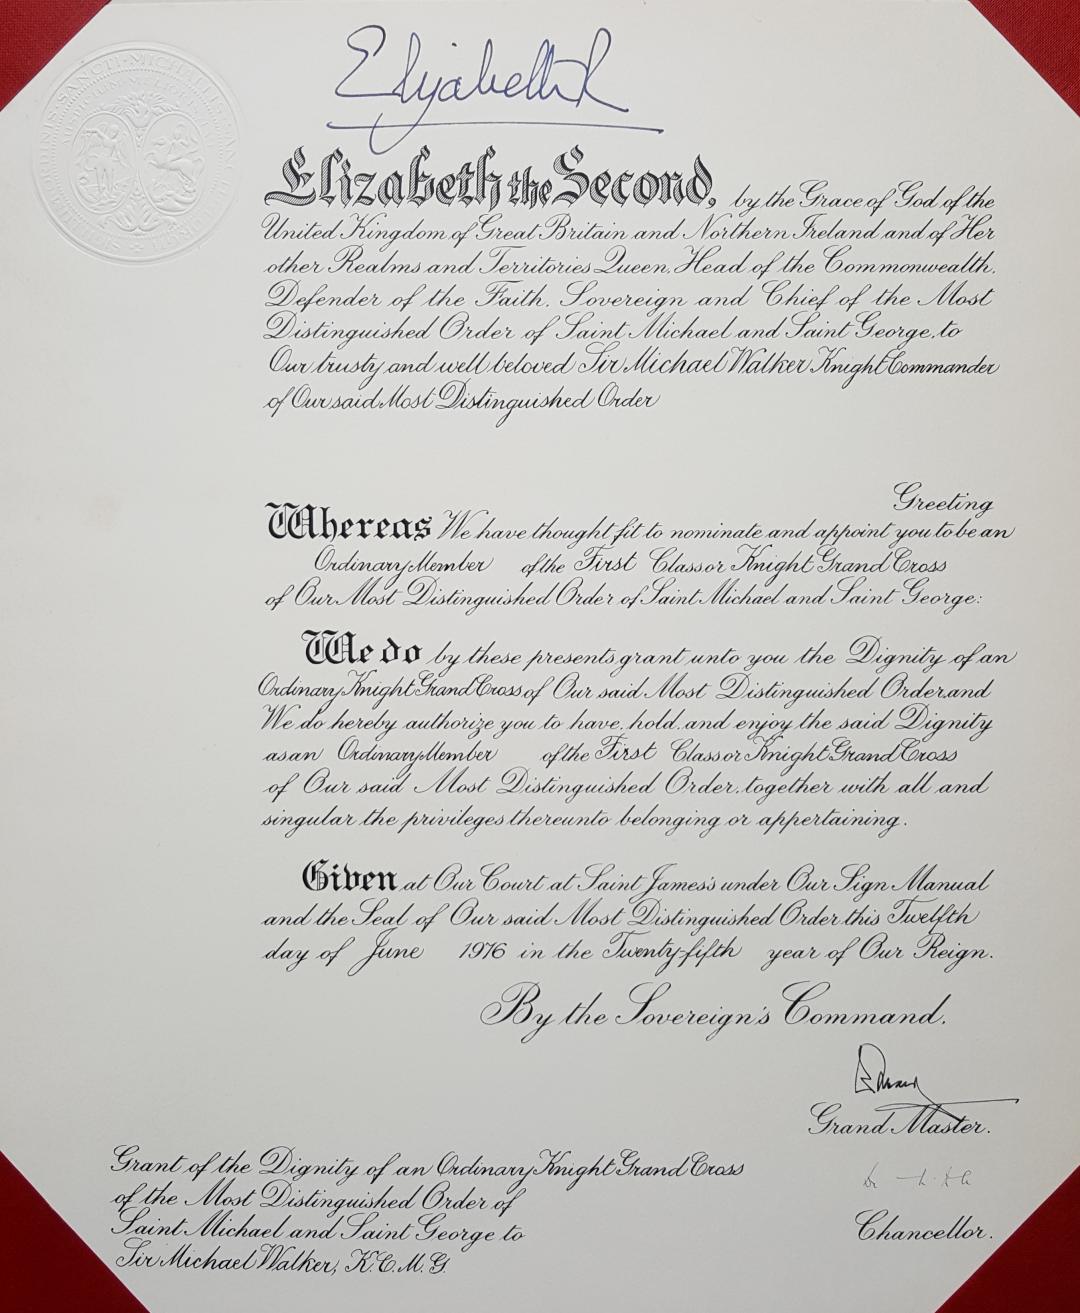 Elizabeth R
Elizabeth the Second, by the Grace of God of the
United Kingdom of Great Britain and Northern Ireland and of Her
other Realms and Territories Queen, Head of the Commonwealth,
Defender of the Faith, Sovereign and Chief of the Most
Distinguished Order of Saint Michael and Saint George, to
Our trusty and well beloved Sir Michael Walker Knight Commander
of Our said Most Distinguished Order
Greeting
Whereas We have thought fit to nominate and appoint you to be an
Ordinary Member of the First Class or Knight Grand Cross
of Our Most Distinguished Order of Saint Michael and Saint George:
We do by these presents grant unto you the Dignity of an
Ordinary Knight Grand Cross of Our said Most Distinguished Order, and
We do hereby authorize you to have, hold, and enjoy the said Dignity
as an Ordinary Member of the First Class or Knight Grand Cross
of Our said Most Distinguished Order, together with all and
singular the privileges thereunto belonging or appertaining.
Given at Our Court at Saint James's under Our Sign Manual
and the Seal of Our said Most Distinguished Order this Twelfth
day of June 1976 in the Twenty-fifth year of Our Reign.
By the Sovereign's Command.
Edward
Grand Master.
Chancellor.
Grant of the Dignity of an Ordinary Knight Grand Cross
of the Most Distinguished Order of
Saint Michael and Saint George to
Sir Michael Walker, K.C.M.G.